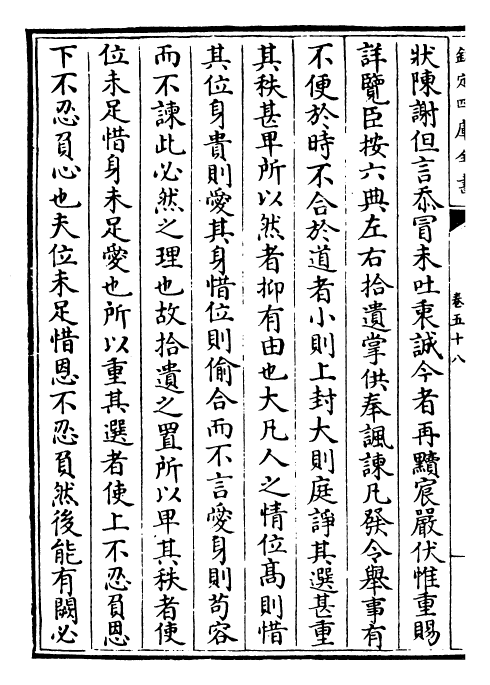 欽定四庫全書
卷五十八
狀陳謝但言忝冒未吐衷誠今者再黷宸嚴伏惟重賜
詳覽臣按六典左右拾遺掌供奉諷諫凡發令舉事有
不便於時不合於道者小則上封大則庭諍其選甚重
其秩甚卑所以然者抑有由也大凡人之情位髙則惜
其位身貴則愛其身惜位則偷合而不言愛身則茍容
而不諫此必然之理也故拾遺之置所以卑其秩者使
位未足惜身未足愛也所以重其選者使上不忍負恩
下不忍負心也夫位未足惜恩不忍負然後能有闕必